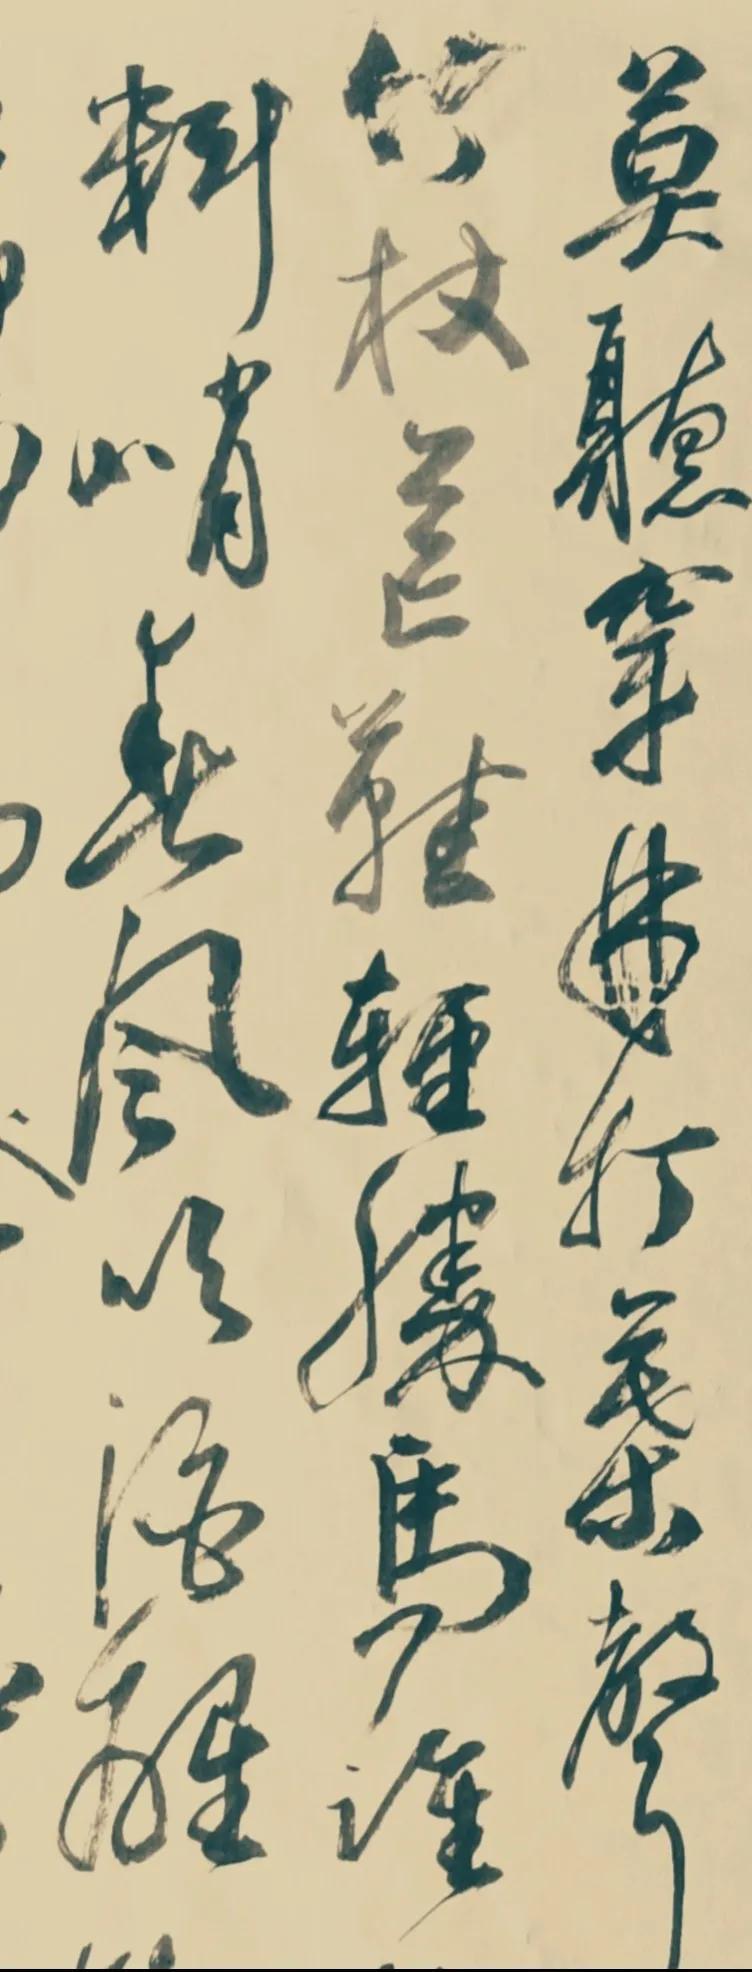 莫聽穿林打葉聲
竹杖芒鞋輕勝馬誰
料峭春風吹酒醒